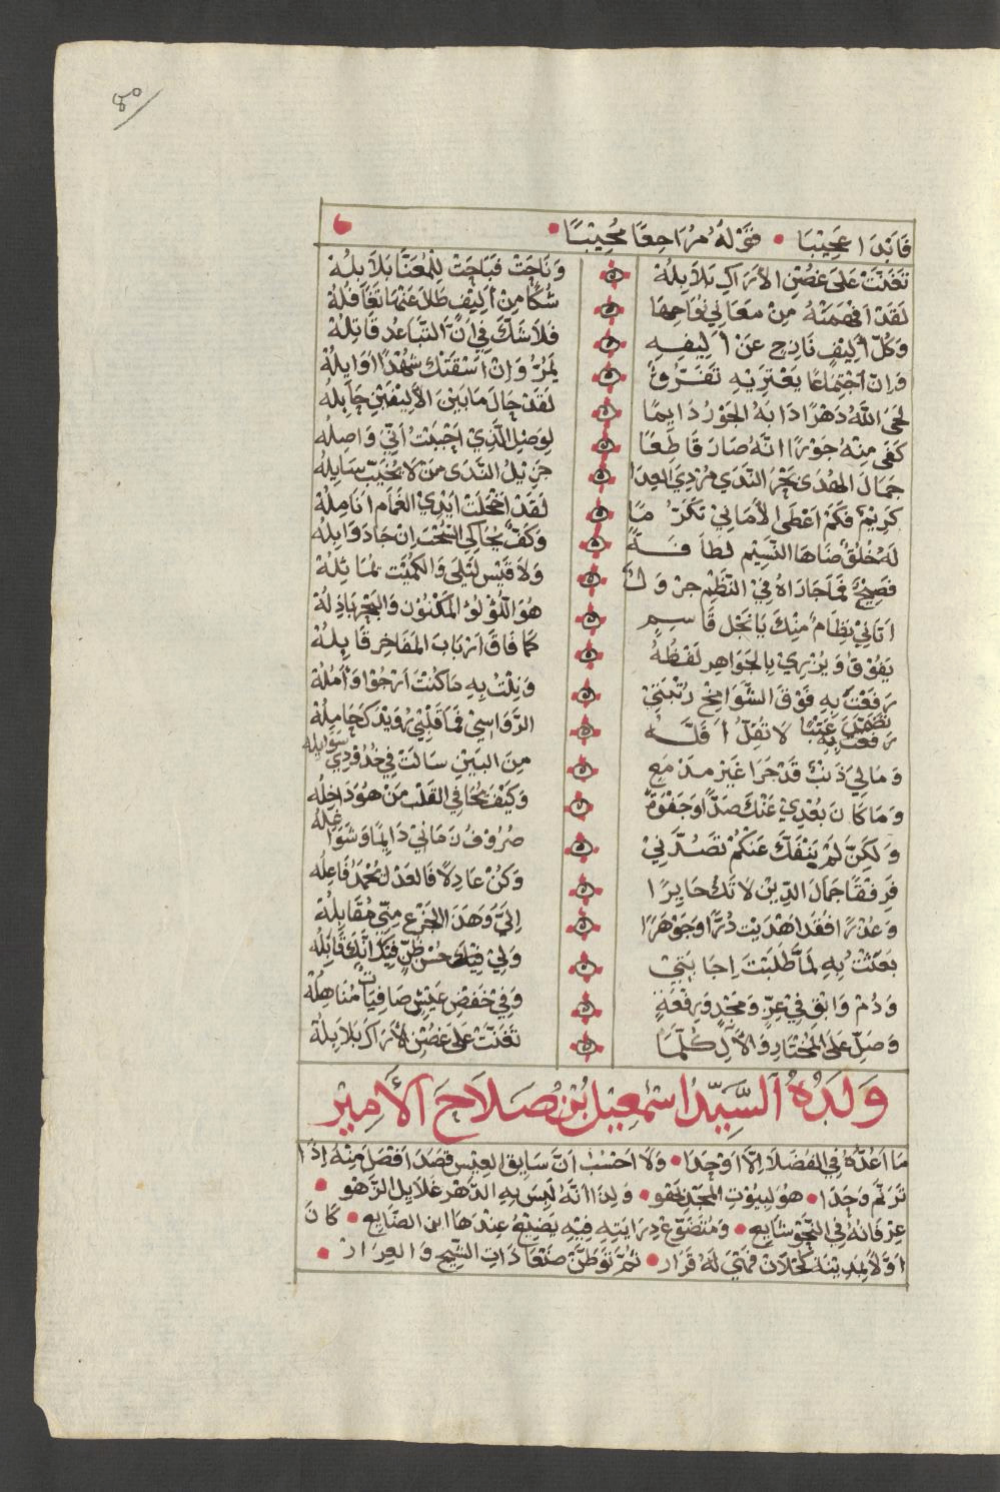 ٤٥
فَابْدَا عَجِيْبَا • قَوْلهُ مُرَاجِعًا مُجِيْبًا •
تَغَنَّتْ عَلَى غصْنِ الأَرَاكِ بَلاَبِلُهْ وَنَاحَتْ فَبَاحَتْ بِالْمُعَنَّا بَلاَبِلُهْ
لَقَدْ افْهَمَتْهُ مِنْ مَعَانِي نُوَاحِهَا شُكًا مِنْ أَلِيْفٍ طَالَ عَنْهَا تَغَافُلُهْ
وَكُلّ أَلِيْفٍ نَازِحٍ عَنْ أَلِيفِهِ فَلاَ شَكَّ فِي انَّ التَّبَاعُد قَاتِلُهْ
وَانّ اجْتِمَاعًا يَعْتَرِيْهِ تَفَرُّقٌ يَمُرّ وَانْ اسْقَتْكَ شُهْدًا اوَايِلُهْ
لَحَى اللهُ دَهْرًا دَابُهُ الجَوْرُ دَايِمًا لَقَدْ حَالَ مَا بَيْنَ الأَلِيْفَيْنِ حَابِلُهْ
كَفَى مِنْهُ جَوْرًا انَّهُ صَارَ قَاطِعًا لِوَصْلِ الَّذِي احْبَبْتُ انِّي وَاصِلُهْ
جَمَالَ الهُدَى بَحْرَ النَّدَى مُرْدِيَ العِدَا جَزِيْلُ النَّدَى مَنْ لاَ يُخَيَّبُ سَايِلُهْ
كَرِيْمٌ فَكَمْ اعْطَى الأَمَانِيْ تَكَرُّمًا لَقَدْ اخْجَلَتْ ايْدِي الغَمَامِ انَامِلُهْ
لَهُ خُلُقٌ ضَاهَا النَّسِيْم لطَافَةً وَكَفٌّ يُحَاكِي السُّحْبَ انْ جَادَ وَابِلُهْ
فَصِيْحٌ فَمَا جَارَاهُ فِيْ النَّظْمِ جَرْوَلٌ وَلاَ قَيْس لَيْلَى وَالكُمَيْت يُمَاثِلُهْ
اتَانِيْ نِظَامٌ مِنْكَ يَا نَجْلَ قَاسِمٍ هُوَ اللُّؤْلُوُ المَكْنُوْن وَالبَحْر بَاذِلُهْ
يَفُوْقُ وَيُزْرِيْ بِالجَوَاهِرِ لَفْظُهُ كَمَا فَاقَ ارْبَابَ المَفَاخِرِ قَايِلُهْ
رَفَعْتَ بِهِ فَوْقَ الشَّوَامِخِ رُتْبَتِيْ وَنِلْتُ بِهِ مَا كُنْتُ ارْجُوْا وَآمُلُهْ
تضَمّنَ عَتْبًا لاَ تُقِلُّ أَقَلَّهُ الرَّوَاسِيْ فَمَا قَلْبِيْ رُوَيْدَكَ حَامِلُهْ
رَفَعْت بِهِ
وَمَالِيَ ذَنْبٌ قَدْ جَرَا غَيْرَ مدْمَعٍ مِنَ البَيْنِ سَالَتْ فِيْ خُدُوْدِيْ سَوَايِلُهْ
وَمَا كَانَ بُعْدِيْ عَنْكَ صَدًّا وَجَفْوَةً وَكَيْفَ يُجَافِي القَلْبُ مَنْ هُوَ دَاخِلُهْ
وَلكِنْ لَمْ يَنْفَكّ عَنْكُمْ تَصُدُّنِيْ صُرُوْفُ زَمَانِيْ دَايِمًا وَشَوَاغِلُهْ
فَرِفْقًا جَمَالَ الدِّيْنِ لاَ تَكُ جَايِرًا وَكُنْ عَادِلاً فَالعَدْلُ يُحْمَدُ فَاعِلُهْ
وَعُذْرًا فَقَدْ اهْدَيْت دُرًّا وَجَوْهَرًا إِلَيَّ وَهَذَا الجَزْعُ مِنِّي مُقَابِلُهْ
بَعَثْتُ بِهِ لَمَّا طَلَبْتَ إِجَابَتِيْ وَلِيْ فِيْكَ حُسْنُ ظَنٍّ فِيْكَ انَّكَ قَابِلُهْ
وَدُمْ وَابْقَ فِيْ عِزٍّ وَمَجْدٍ وَرِفْعَةٍ وَفِيْ خَفْضِ عَيْشٍ صَافِيَات مَنَاهِلُهْ
وَصَلِّ عَلَى المُخْتَارِ وَالآلِ كُلَّمَا تَغَنَّتْ عَلَى غُصْنِ الأَرَاكِ بَلاَبِلُهْ
وَلَدُهُ السَّيِّدُ اسْمٰعِيْل بْنُ صَلاَحَ الأَمِيْر
مَا اعُدُّهُ فِي الفُضَلاَ اِلَّا اوْحَدَا • وَلاَ احْسَبُ انَّ سَايِقَ العِيْسِ قَصَدَ افْضَلَ مِنْهُ إِذَا
تَرَنَّمَ وَحَدَا • هُوَ لِبيُوْتِ المَجْدِ نَحْو • وَلِذَا انَّهُ لَبِسَ بِهِ الدَّهْر غَلاَيِلَ الزَّهْو •
عِرْفَانُهُ فِي النَّحْوِ شَايِع • وَمُتَضَوِّعُ دِرَايَتِهِ فِيْهِ يَضِيْعُ عِنْدَهَا ابن الضَّايِع • كَانَ
اوَّلاً بِمَدِيْنَةِ كَحْلاَنَ فَمَتَى لَهُ قَرَار • ثُمّ تَوَطَّنَ صَنْعَا ذَاتِ الشِّيْح وَالعِرَار •